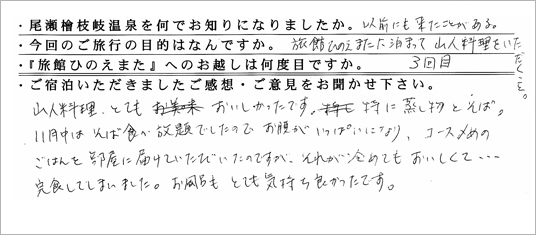 ・尾瀬檜枝岐温泉を何でお知りになりましたか。以前にも来たことがある。
・今回のご旅行の目的はなんですか。 旅館ひのえまたに泊まって山人料理をいただくこと。
・『旅館ひのえまた』へのお越しは何度目ですか。 3回目
・ご宿泊いただきましたご感想・ご意見をお聞かせ下さい。
山人料理、とても おいしかったです。特に蒸し物とそば。
11月中はそば食べ放題でしたのでお腹がいっぱいになり、コース〆の
ごはんを部屋に届けていただいたのですが、それが冷めてもおいしくて…
完食してしまいました。お風呂もとても気持ち良かったです。